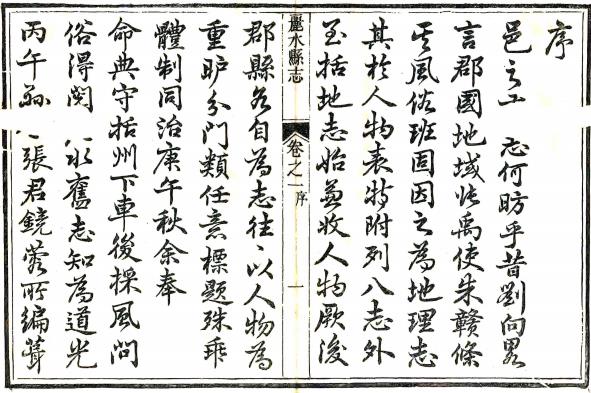 序
邑之 志何昉乎昔劉向畧
言郡國地域張禹使朱贛條
其風俗班固因之為地理志
其於人物表特附列八志外
至括地志始兼收人物厥後
麗水縣志
卷之一
序
一
郡縣各自為志往〻以人物為
重 分門類任意標題殊乖
體制同治庚午秋余奉
命典守括州下車後採風問
俗得閱 水舊志知為道光
丙午 張君鏡蓉所編葺